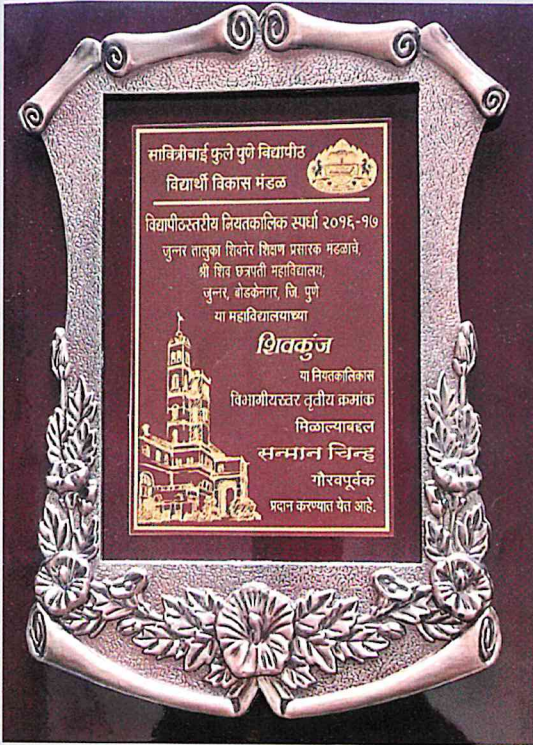 सावित्रीबाई फुले पुणे विद्यापीठ
विद्यार्थी विकास मंडळ
विद्यापीठस्तरीय नियतकालिक स्पर्धा २०१६-१७
जुन्नर तालुका शिवनेर शिक्षण प्रसारक मंडळाचे,
श्री शिव छत्रपती महाविद्यालय,
जुन्नर, बोडकेनगर, जि. पुणे
या महाविद्यालयाच्या
शिवकुंज
या नियतकालिकास
विभागीयस्तर तृतीय क्रमांक
मिळाल्याबद्दल
सन्मान चिन्ह
गौरवपूर्वक
प्रदान करण्यात येत आहे.